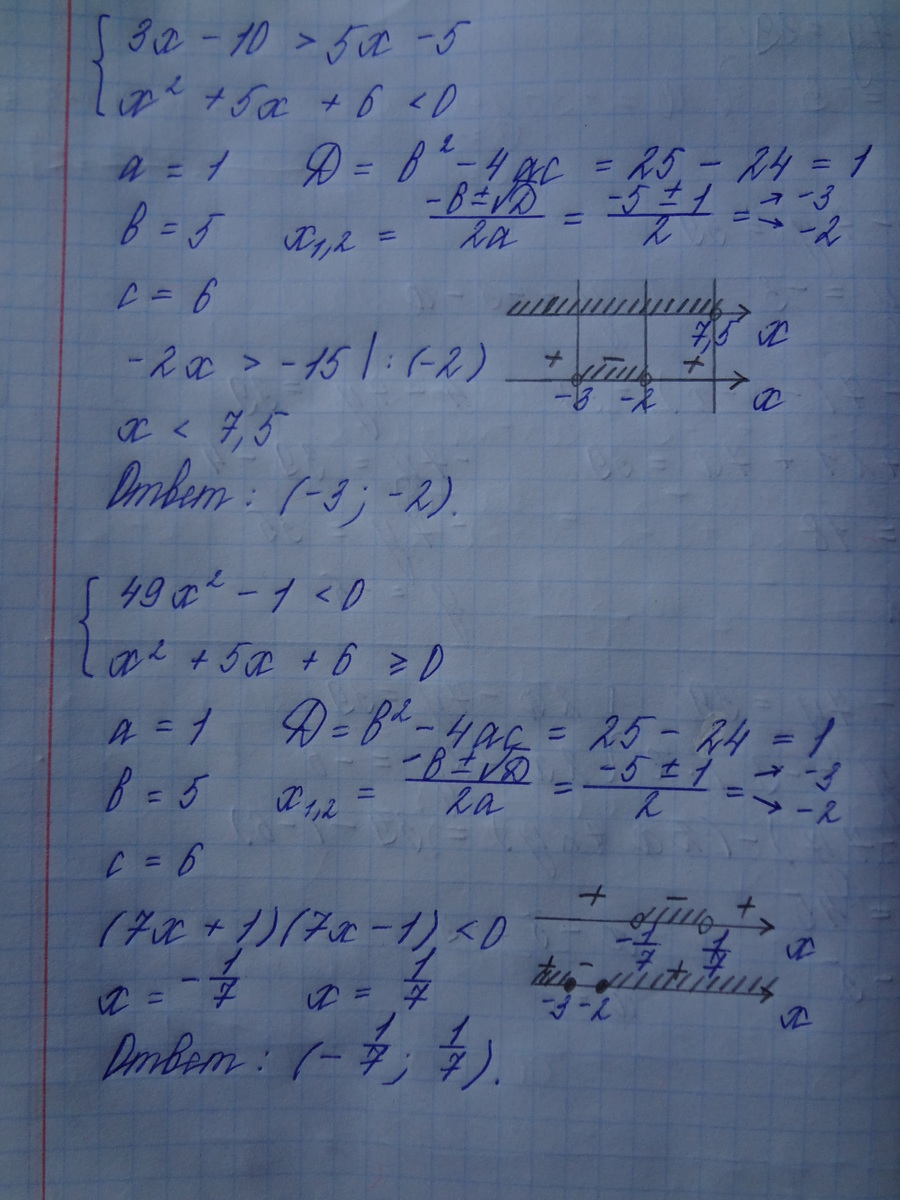 { 3x - 10 > 5x - 5
x² + 5x + 6 < 0
a = 1 D = b² - 4ac = 25 - 24 = 1
b = 5 x₁,₂ = (-b ± √D)/2a = (-5 ± 1)/2 = → -3 → -2
c = 6
7,5 x
-2x > -15 | : (-2)
+ - +
-3 -2 x
x < 7,5
Ответ: (-3; -2).
{ 49x² - 1 < 0
x² + 5x + 6 ≥ 0
a = 1 D = b² - 4ac = 25 - 24 = 1
b = 5 x₁,₂ = (-b ± √D)/2a = (-5 ± 1)/2 = → -3 → -2
c = 6
+ - +
(7x + 1)(7x - 1) < 0
-1/7 1/7 x
x = -1/7 x = 1/7
+ - +
-3 -2 x
Ответ: (-1/7; 1/7).